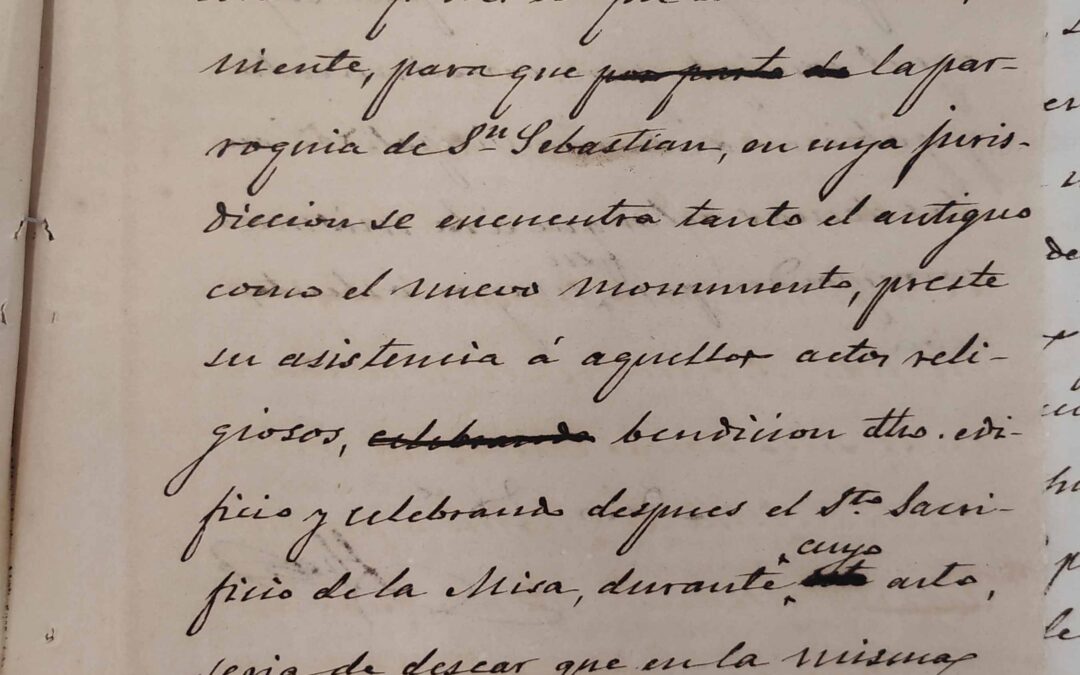 niente, para que por parte de la par-
roquia de Sn Sebastian, en cuya juris-
diccion se encuentra tanto el antiguo
como el nuevo monumento, preste
su asistencia á aquellos actos reli-
giosos, celebrando bendicion dho. edi-
ficio y celebrando despues el Sto. Sacri-
ficio de la Misa, durante cuyo acto,
seria de desear que en la misma